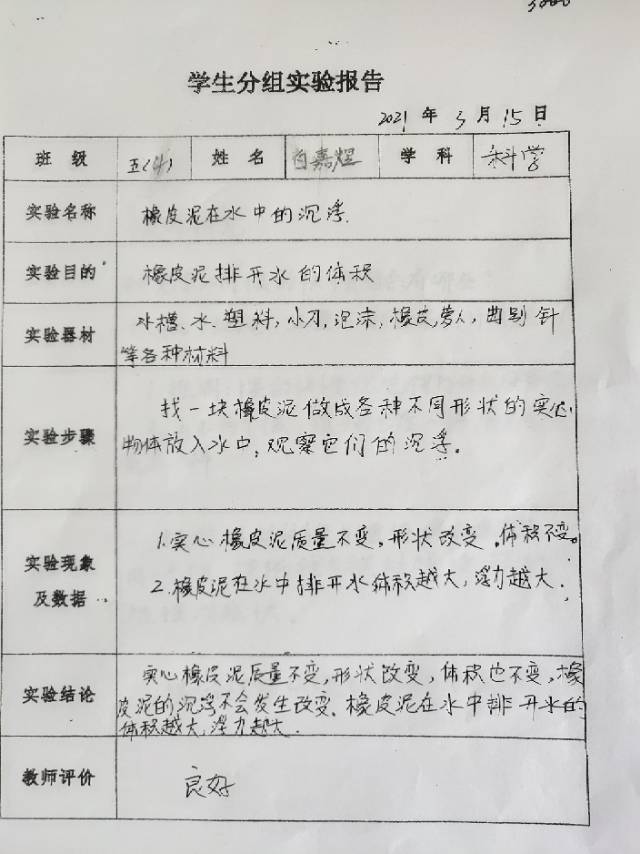 学生分组实验报告
2021 年 3 月 15 日
班 级 五(4) 姓 名 嘉煜 学 科 科学
实验名称 橡皮泥在水中的沉浮.
实验目的 橡皮泥排开水的体积
实验器材 水槽、水、塑料,小刀,泡沫,橡皮,萝卜,曲别针
等各种材料
实验步骤 找一块橡皮泥做成各种不同形状的实心
物体放入水中,观察它们的沉浮。
实验现象
及数据
1.实心橡皮泥质量不变,形状改变,体积不变。
2.橡皮泥在水中排开水体积越大,浮力越大.
实验结论 实心橡皮泥质量不变,形状改变,体积也不变,橡
皮泥的沉浮不会发生改变、橡皮泥在水中排开水的
体积越大,浮力越大.
教师评价 良好